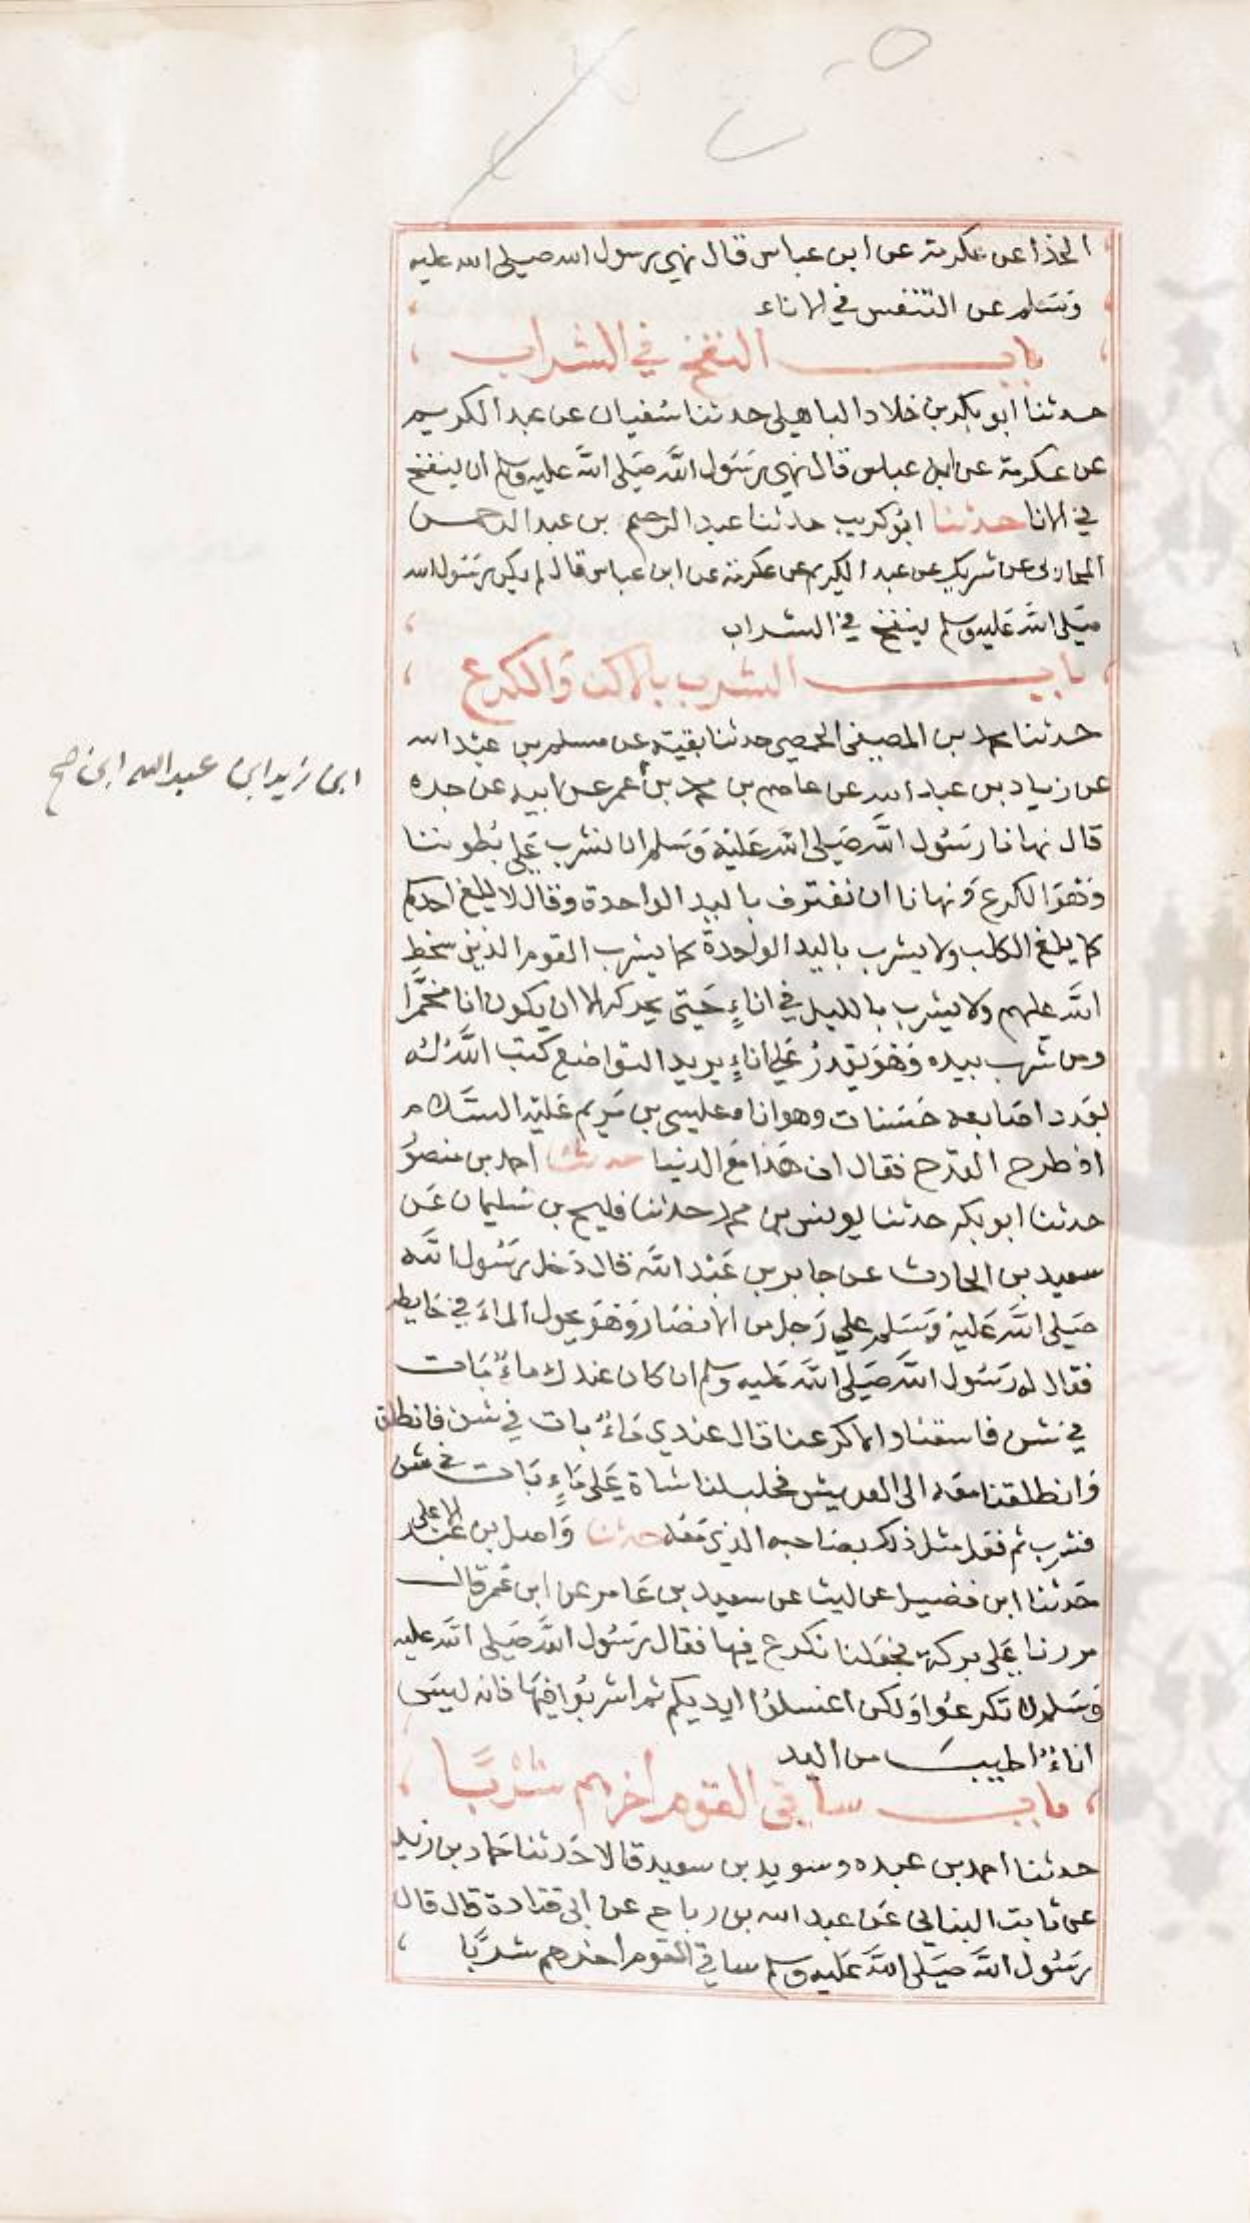 الحذا عن عكرمة عن ابن عباس قال نهى رسول الله صلى الله عليه
وسلم عن التنفس في الاناء
باب النفخ في الشراب
حدثنا ابو بكر بن خلاد الباهلي حدثنا سفيان عن عبد الكريم
عن عكرمة عن ابن عباس قال نهى رسول الله صلى الله عليه وسلم ان ينفخ
في الانا حدثنا ابو كريب حدثنا عبد الرحيم بن عبد الرحمن
المحاربي عن شريك عن عبد الكريم عن عكرمة عن ابن عباس قال لم يكن رسول الله
صلى الله عليه وسلم ينفخ في الشراب
باب الشرب بالاكف والكرع
حدثنا محمد بن المصفى الحمصي حدثنا بقية عن مسلم بن عبد الله
عن زياد بن عبد الله عن عاصم بن محمد بن عمر عن ابيه عن جده
ابن زيد ابن عبد الله ابن صح
قال نهانا رسول الله صلى الله عليه وسلم ان نشرب على بطوننا
وهو الكرع ونهانا ان نغترف باليد الواحدة وقال لا يلغ احدكم
كما يلغ الكلب ولا يشرب باليد الواحدة كما يشرب القوم الذين سخط
الله عليهم ولا يشرب بالليل في اناءٍ حتى يحركه الا ان يكون انا مخمرًا
ومن شرب بيده وهو يقدر على اناءٍ يريد التواضع كتب الله له
بعدد اصابعه حسنات وهو انا عيسى بن مريم عليه السلام
اذ طرح القدح فقال اف هذا مع الدنيا حدثنا احمد بن منصور
حدثنا ابو بكر حدثنا يونس بن محمد حدثنا فليح بن سليمان عن
سعيد بن الحارث عن جابر بن عبد الله قال دخل رسول الله
صلى الله عليه وسلم على رجل من الانصار وهو يحول الماء في حايطه
فقال له رسول الله صلى الله عليه وسلم ان كان عندك ماءٌ بات
في شن فاسقنا والا كرعنا قال عندي ماءٌ بات في شن فانطلق
وانطلقنا معه الى العريش فحلب لنا شاة على ماءٍ بات في شن
فشرب ثم فعل مثل ذلك بصاحبه الذي معه حدثنا واصل بن عبد الاعلى
حدثنا ابن فضيل عن ليث عن سعيد بن عامر عن ابن عمر قال
مررنا على بركة فجعلنا نكرع فيها فقال رسول الله صلى الله عليه
وسلم لا تكرعوا ولكن اغسلوا ايديكم ثم اشربوا فيها فانه ليس
اناءٌ اطيب من اليد
باب ساقي القوم اخرهم شربًا
حدثنا احمد بن عبده وسويد بن سعيد قالا حدثنا حماد بن زيد
عن ثابت البناني عن عبد الله بن رباح عن ابي قتادة قال قال
رسول الله صلى الله عليه وسلم ساقي القوم اخرهم شربًا